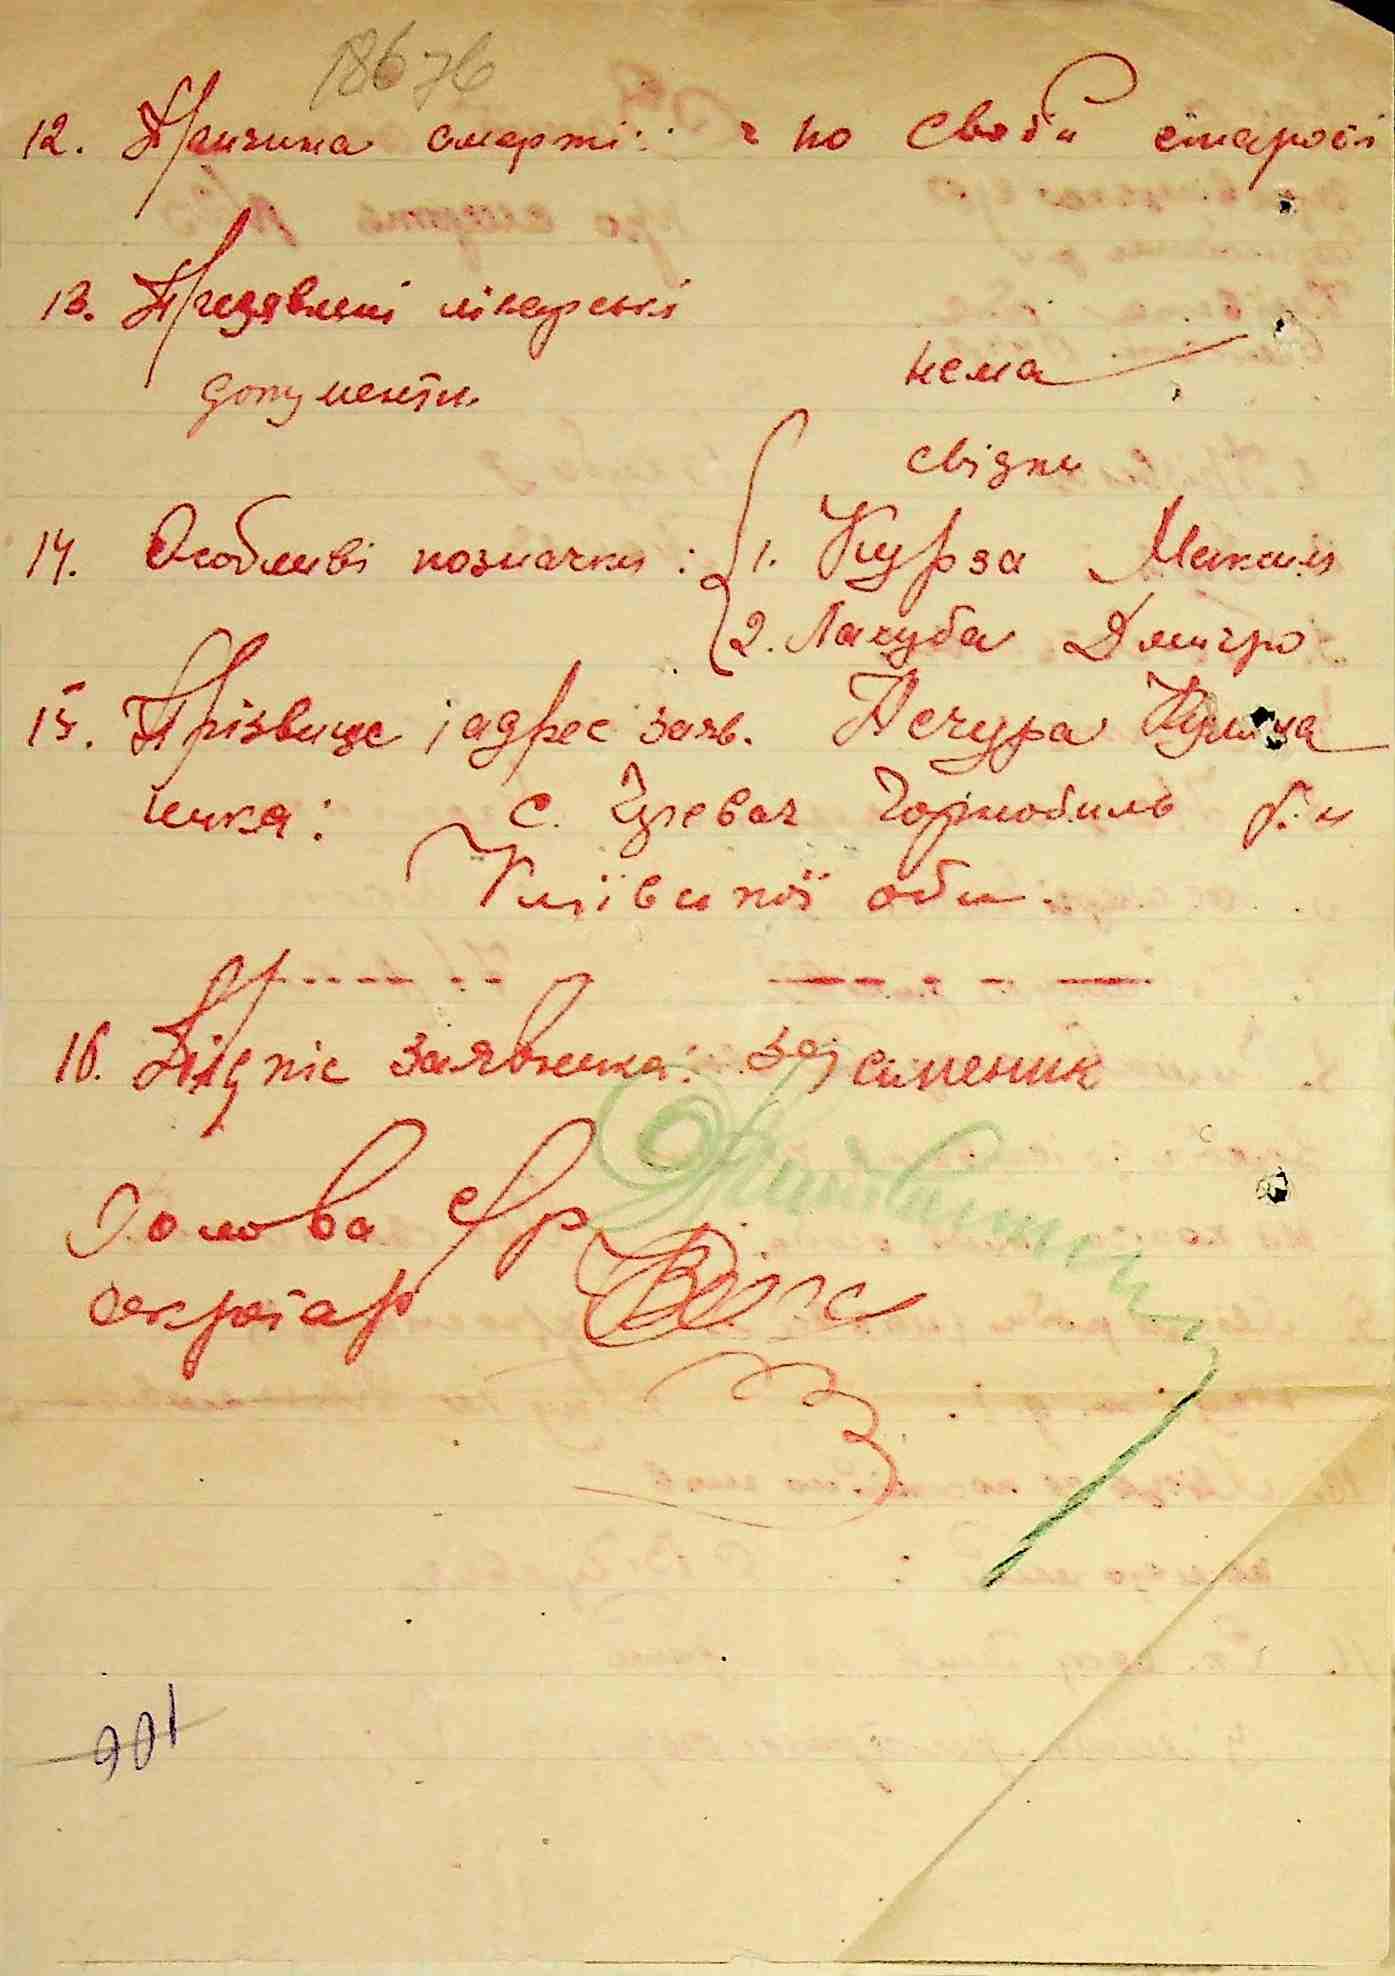 18676
12. Причина смерті: по свойи старості
13. Предявлені лікарські
документи нема
свідки
14. Особливі позначки: 1. Курза Микола
2. Лакуба Дмитро
15. Прізвище і адрес заяв. Печура
ника: с. Чорнобиль р.н
Київскої обл.
16. Підпіс заявника:
Голова с/р
секретар
106